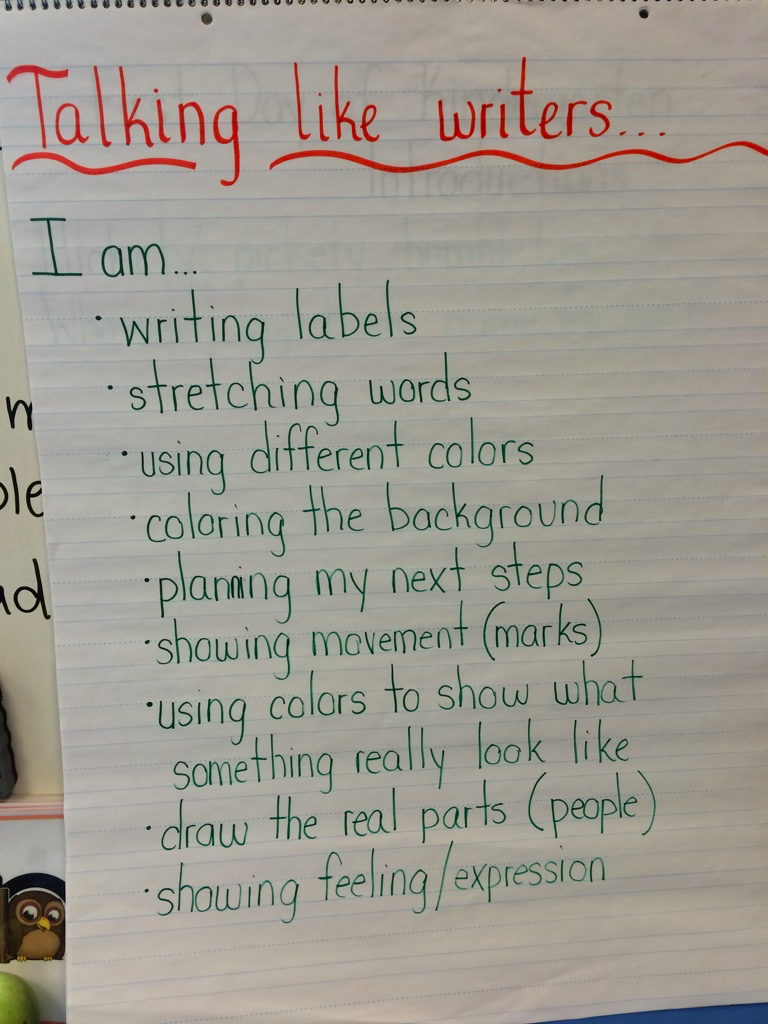 Talking like writers...
I am...
· writing labels
· stretching words
· using different colors
· coloring the background
· planning my next steps
· showing movement (marks)
· using colors to show what
something really look like
· draw the real parts (people)
· showing feeling/expression